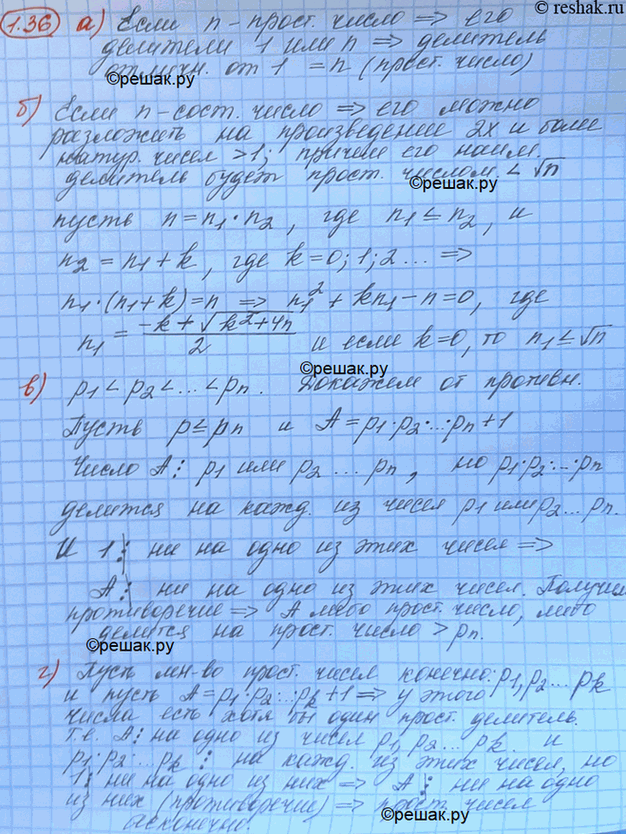 © reshak.ru
1.36 а) Если n - прост. число ⇒ его
делители 1 или n ⇒ делитель
отличн. от 1 = n (прост. число)
©решак.ру
б) Если n - сост. число ⇒ его можно
разложить на произведение 2х и более
натур. чисел >1; причем его наим.
делитель будет прост. числом < √n
©решак.ру
пусть n = n₁·n₂, где n₁ ≤ n₂, и
n₂ = n₁ + k, где k = 0; 1; 2 ... ⇒
n₁·(n₁+k) = n ⇒ n₁² + kn₁ - n = 0, где
n₁ = (-k + √(k²+4n))/2 и если k=0, то n₁ ≤ √n
©решак.ру
в) p₁ < p₂ < ... < pₙ. Докажем от противн.
Пусть p ≤ pₙ и A = p₁·p₂·...·pₙ + 1
Число A ⋮ p₁ или p₂ ... pₙ, но p₁·p₂·...·pₙ
делится на кажд. из чисел p₁ или p₂ ... pₙ.
И 1 ⋮ ни на одно из этих чисел ⇒
A ⋮ ни на одно из этих чисел. Получим
противоречие ⇒ A либо прост. число, либо
делится на прост. число > pₙ.
©решак.ру
г) Пусть мн-во прост. чисел конечно: p₁, p₂ ... pₖ
и пусть A = p₁·p₂·...pₖ + 1 ⇒ у этого
числа есть хотя бы один прост. делитель.
Т.е. A ⋮ на одно из чисел p₁, p₂ ... pₖ. и
p₁·p₂·...pₖ ⋮ на кажд. из этих чисел, но
1 ⋮ ни на одно из них ⇒ A ⋮ ни на одно
из них (противоречие) ⇒ прост. чисел
бесконечно.
©решак.ру